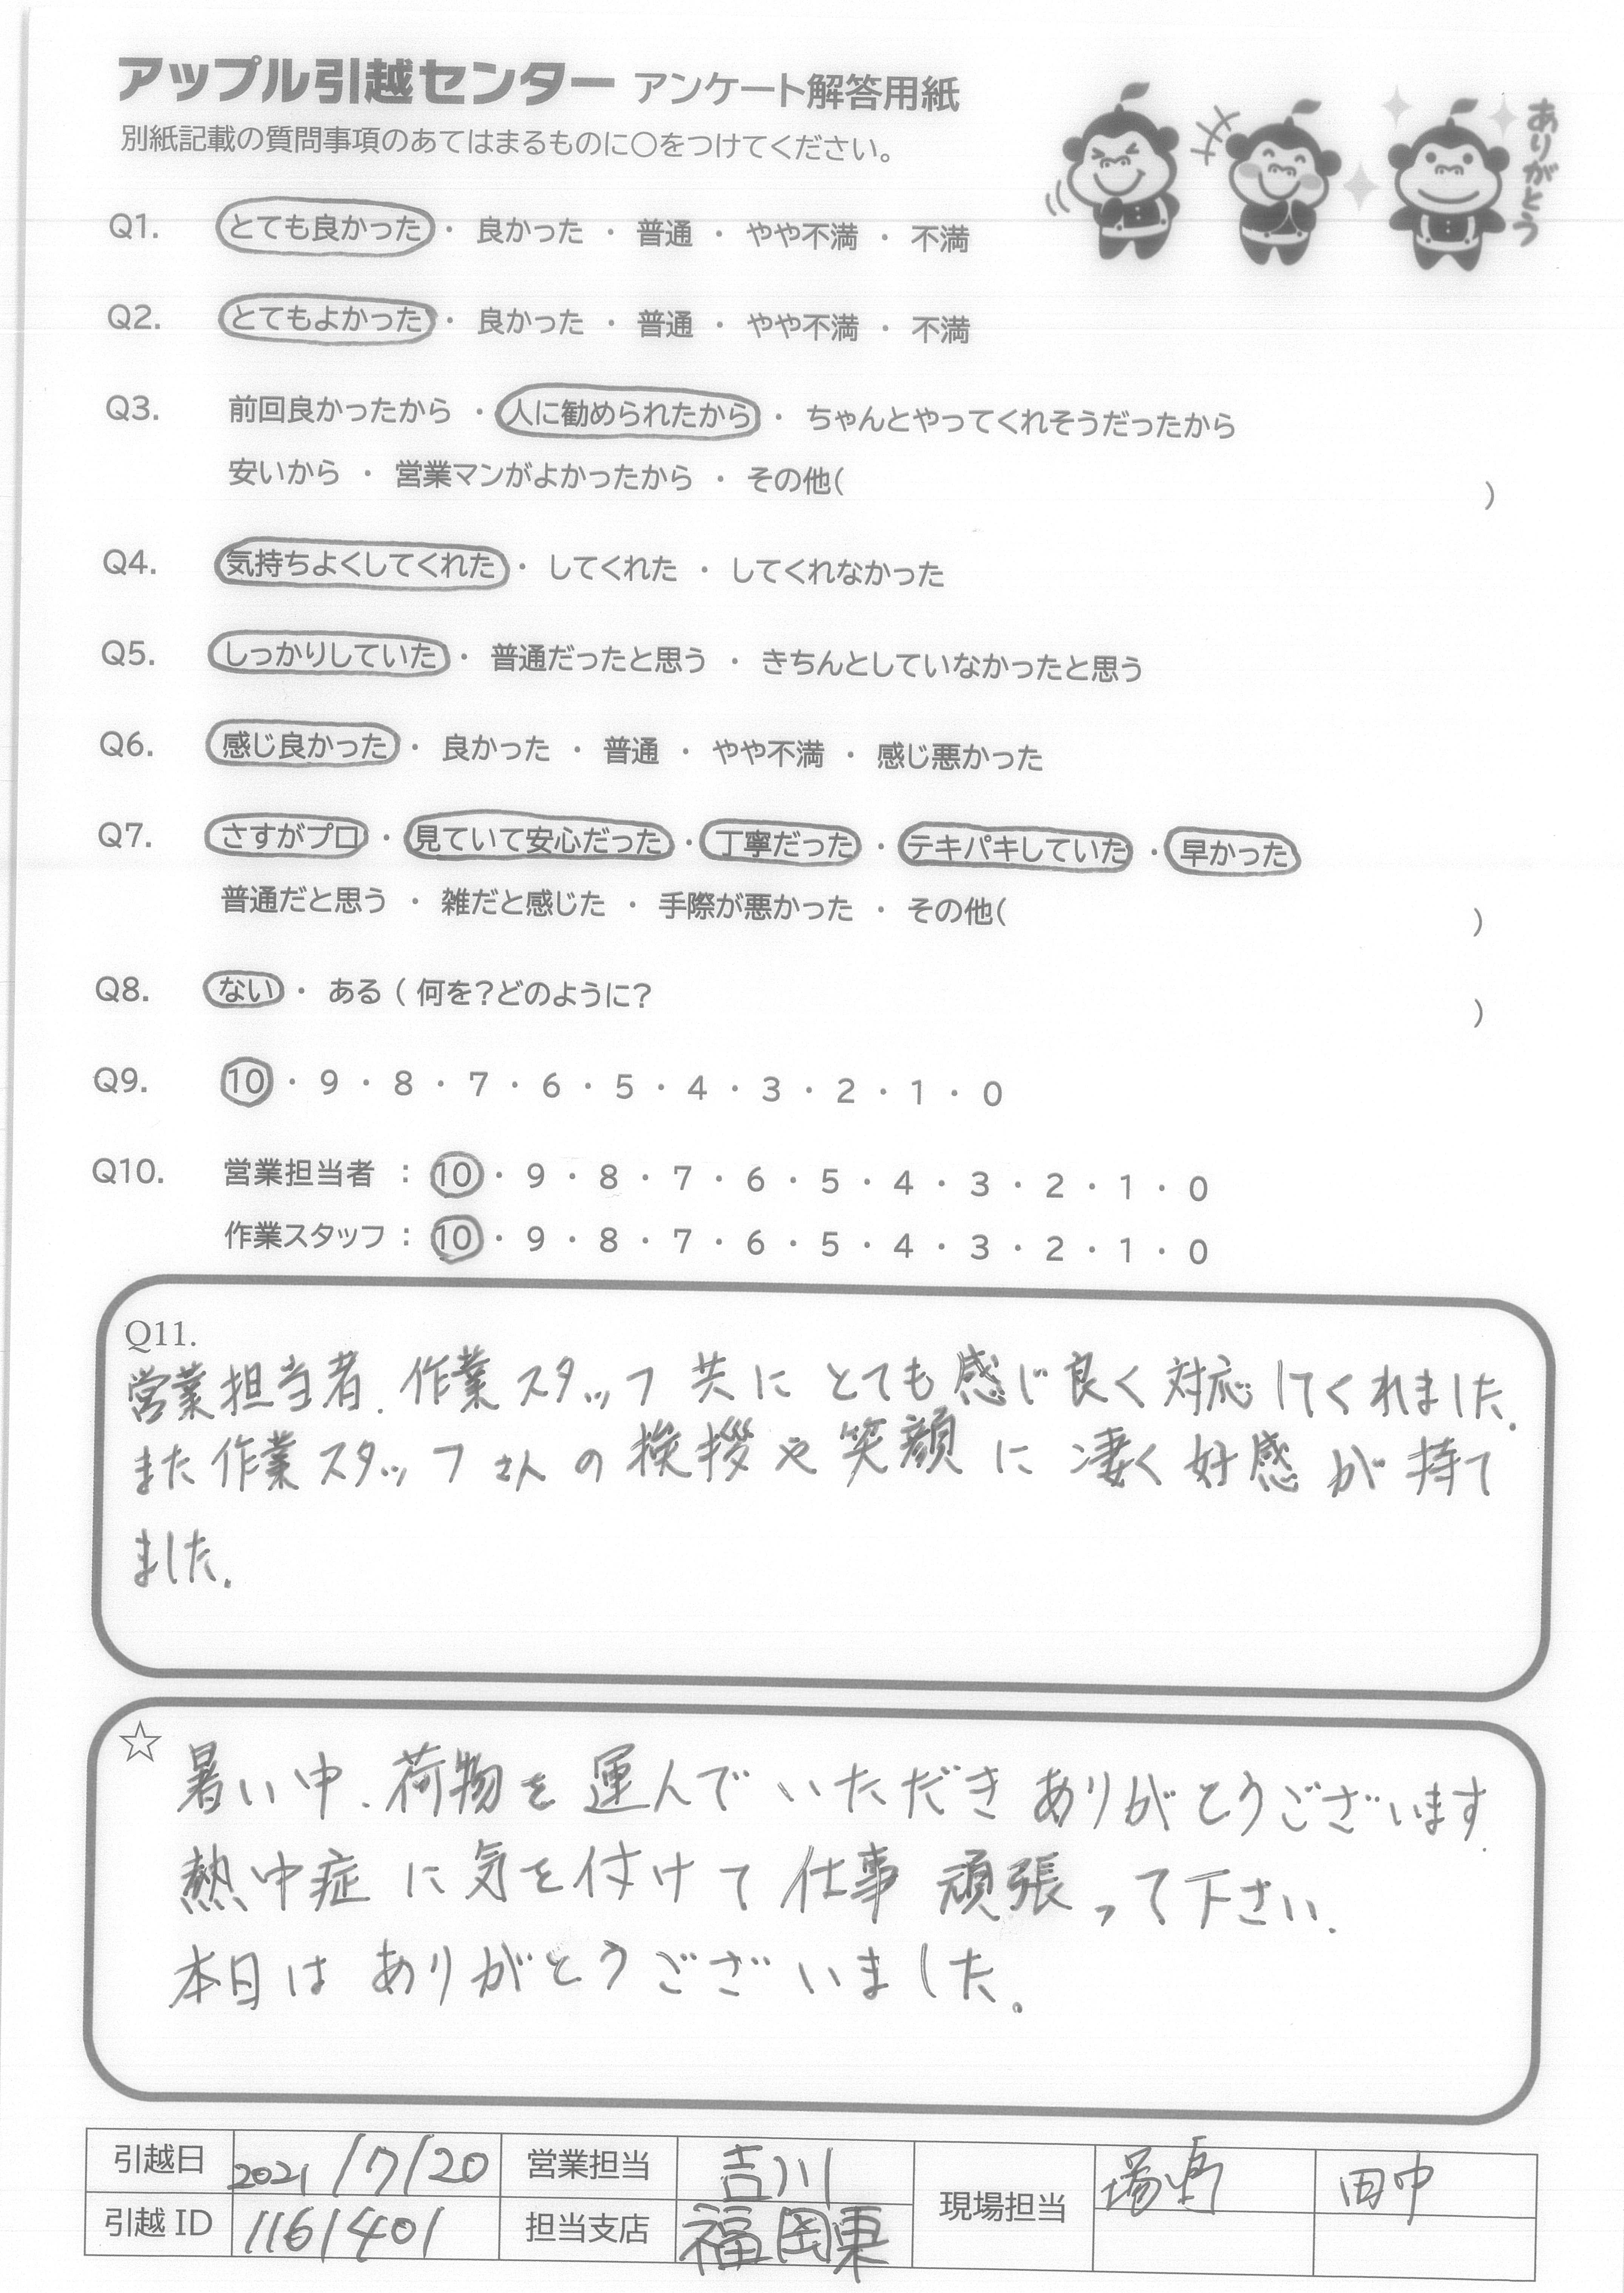 アップル引越センター アンケート解答用紙
別紙記載の質問事項のあてはまるものに〇をつけてください。
ありがとう
Q1. とても良かった ・ 良かった ・ 普通 ・ やや不満 ・ 不満
Q2. とてもよかった ・ 良かった ・ 普通 ・ やや不満 ・ 不満
Q3. 前回良かったから ・ 人に勧められたから ・ ちゃんとやってくれそうだったから
安いから ・ 営業マンがよかったから ・ その他( )
Q4. 気持ちよくしてくれた ・ してくれた ・ してくれなかった
Q5. しっかりしていた ・ 普通だったと思う ・ きちんとしていなかったと思う
Q6. 感じ良かった ・ 良かった ・ 普通 ・ やや不満 ・ 感じ悪かった
Q7. さすがプロ ・ 見ていて安心だった ・ 丁寧だった ・ テキパキしていた ・ 早かった
普通だと思う ・ 雑だと感じた ・ 手際が悪かった ・ その他( )
Q8. ない ・ ある ( 何を?どのように? )
Q9. 10 ・ 9 ・ 8 ・ 7 ・ 6 ・ 5 ・ 4 ・ 3 ・ 2 ・ 1 ・ 0
Q10. 営業担当者 : 10 ・ 9 ・ 8 ・ 7 ・ 6 ・ 5 ・ 4 ・ 3 ・ 2 ・ 1 ・ 0
作業スタッフ : 10 ・ 9 ・ 8 ・ 7 ・ 6 ・ 5 ・ 4 ・ 3 ・ 2 ・ 1 ・ 0
Q11.
営業担当者、作業スタッフ共にとても感じ良く対応してくれました。
また作業スタッフさんの挨拶や笑顔に凄く好感が持て
ました。
☆
暑い中、荷物を運んでいただきありがとうございます。
熱中症に気を付けて仕事頑張って下さい。
本日はありがとうございました。
引越日 2021/7/20 営業担当 吉川 現場担当 田中
引越ID 1161401 担当支店 福岡東